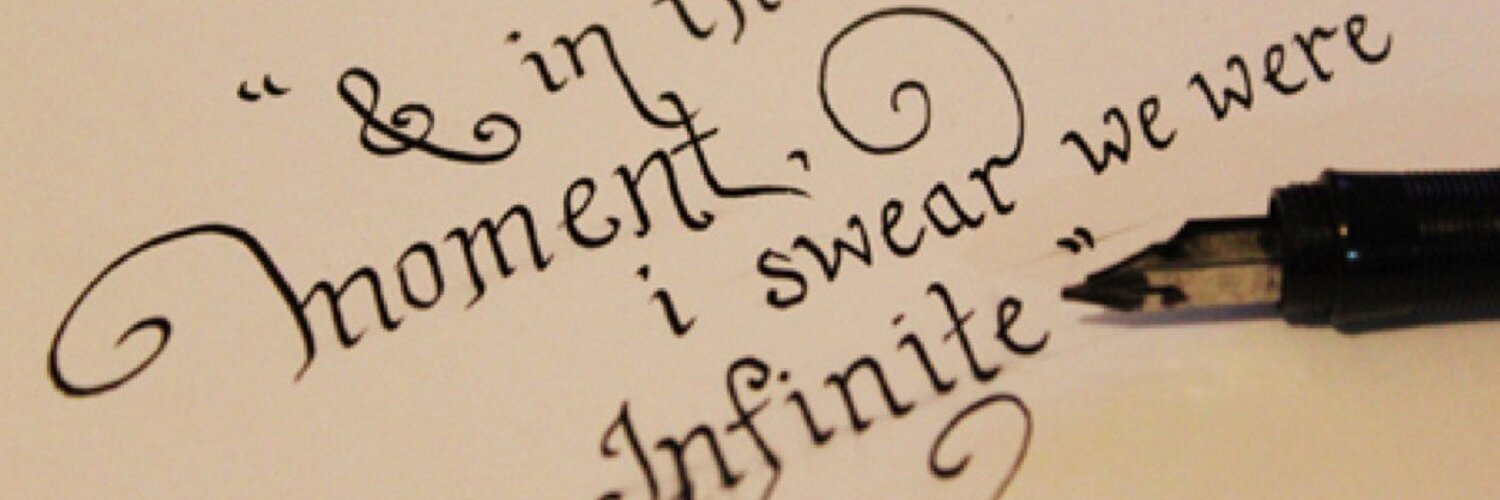 “ & in
moment,
i swear we were
Infinite ”